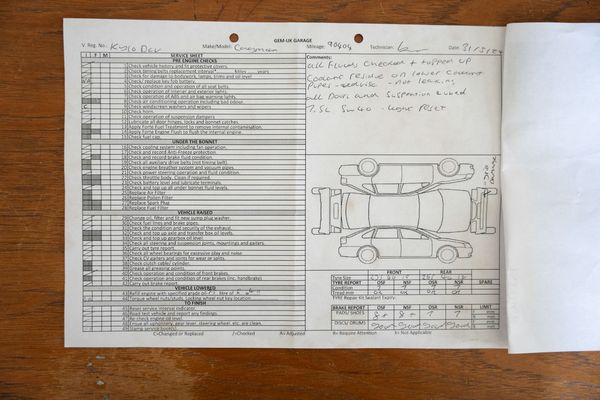 GEM-UK GARAGE
V. Reg. No.: Make/Model: Mileage: 90404 Technician: Date: 31/3/2
I F M SERVICE SHEET
PRE ENGINE CHECKS
1 Check vehicle history and fit protective covers.
2 Check timing belts replacement interval*. Miles years
3 Check for damage to bodywork, lamps, trims and oil level
4 Check/ replace key fob battery.
5 Check condition and operation of all seat belts.
6 Check operation of interior and exterior lights.
7 Check operation of ABS and air bag warning lights.
8 Check air conditioning operation including bad odour.
9 Check windscreen washers and wipers
10 Check horn.
11 Check operation of suspension dampers
12 Lubricate all door hinges, locks and bonnet catches
13 Apply Forte Fuel Treatment to remove internal contamination.
14 Apply Forte Engine Flush to flush the internal engine.
15 Check fuel cap.
UNDER THE BONNET
16 Check cooling system including fan operation.
17 Check and record Anti-Freeze protection.
18 Check and record brake fluid condition.
19 Check all auxiliary drive belts (not timing belt).
20 Check engine breather system and vacuum pipes.
21 Check power steering operation and fluid condition.
22 Check throttle body. Clean if required.
23 Check battery level and lubricate terminals.
24 Check and top up all under bonnet fluid levels.
25 Replace Air Filter
26 Replace Pollen Filter
27 Replace Spark Plug
28 Replace Fuel Filter
VEHICLE RAISED
29 Change oil, filter and fit new sump plug washer.
30 Check fuel lines and brake pipes.
31 Check the condition and security of the exhaust.
32 Check and top up axle and transfer box oil levels.
33 Check and top up gearbox oil level.
34 Check all steering and suspension joints, mountings and gaiters.
35 Carry out tyre report.
36 Check all wheel bearings for excessive play and noise
37 Check CV gaiters and joints for wear or splits.
38 Check clutch cable/ cylinder.
39 Grease all greasing points
40 Check operation and condition of front brakes.
41 Check operation and condition of rear brakes (inc. handbrake)
42 Carry out brake report.
VEHICLE LOWERED
43 Refill engine with specified grade oil
44 Torque wheel nuts/studs. Locking wheel nut key location.
TO FINISH
45 Reset service interval indicator.
46 Road test vehicle and report any findings.
47 Re-check engine oil level.
48 Ensure all upholstery, gear lever, steering wheel, etc. are clean.
49 Stamp service book(s)
C=Changed or Replaced /=Checked A=Adjusted R= Require Attention X= Not Applicable
Comments:
all Fluids Checked + topped up
Coolant residue on lower coolant
Pipes - - not leaking
all Doors and Suspension Lubed
7.5L 5w40 - Light Reset
FRONT REAR
Tyre Size
TYRE REPORT OSF NSF OSR NSR SPARE
Condition
Tread mm
TYRE Repair Kit Sealant Expiry:
BRAKE REPORT OSF NSF OSR NSR LIMIT
PADS/ SHOES
DISCS/ DRUMS Good Good Good Good